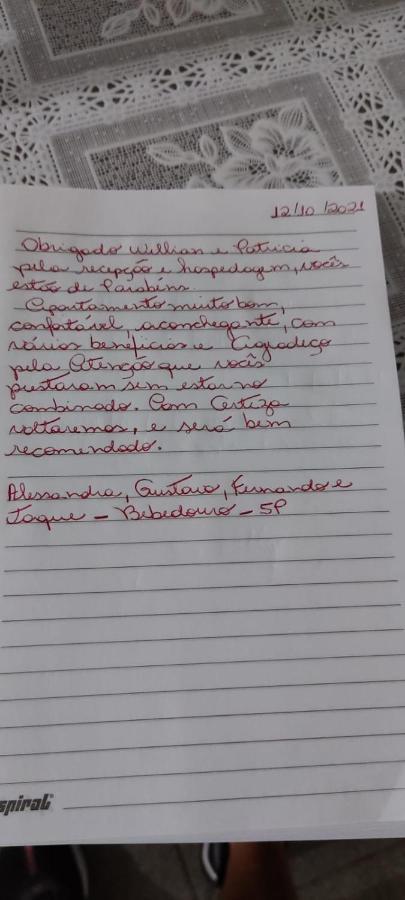 12/10/2021
Obrigado Willian e Patricia
pela recepção e hospedagem, vocês
estão de Parabéns.
Apartamento muito bom,
confortável, aconchegante, com
vários benefícios e Agradeço
pela Atenção que vocês
prestaram sem estar no
combinado. Com Certeza
voltaremos, e será bem
recomendado.
Alessandra, Gustavo, Fernando e
Jaque - Bebedouro - SP
spiral